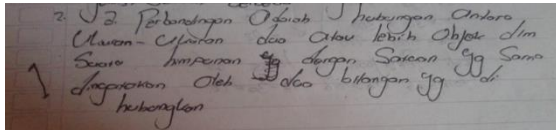 2. J 2. Perbandingan Adalah hubungan Antara
Ukuran-Ukuran dua atau lebih Objek dlm
Suatu himpunan yg dengan Satuan yg Sama
dinyatakan Oleh dua bilangan yg di
hubungkan